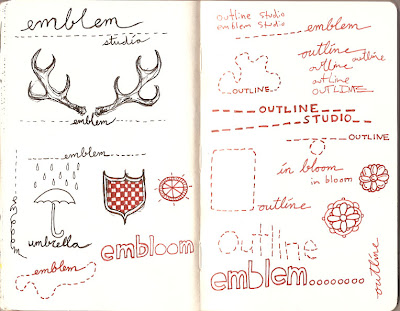 emblem
studio
emblem
emblem
embloom
umbrella
embloom
emblem
outline Studio
emblem Studio
emblem
outline
outline
outline
outline
OUTLINE
OUTLINE
OUTLINE
STUDIO
OUTLINE
in bloom
in bloom
outline
Outline
emblem........
outline